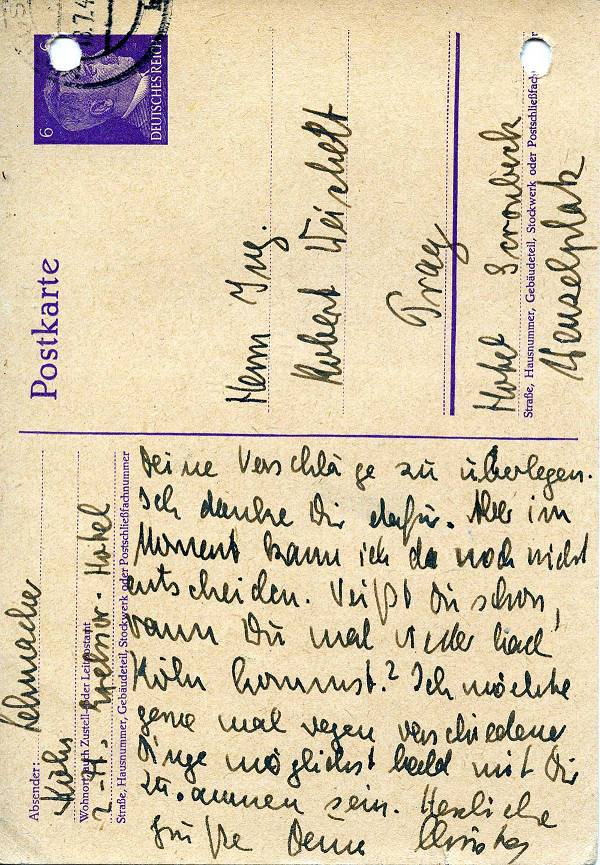 6 6
DEUTSCHES REICH
Postkarte
Herrn Ing.
Robert
Prag
Hotel
Straße, Hausnummer, Gebäudeteil, Stockwerk oder Postschließfachn
Wenzelplatz
Absender:
Köln
Wohnort, auch Zustell- oder Leitpostamt
Excelsior-Hotel
Straße, Hausnummer, Gebäudeteil, Stockwerk oder Postschließfachnummer
Deine Vorschläge zu überlegen.
Ich danke Dir dafür. Aber im
Moment kann ich da noch nicht
entscheiden. Weißt Du schon,
wann Du mal wieder nach
Köln kommst.? Ich möchte
gerne mal wegen verschiedener
Dinge möglichst bald mit Dir
zusammen sein. Herzliche
Grüße Deine